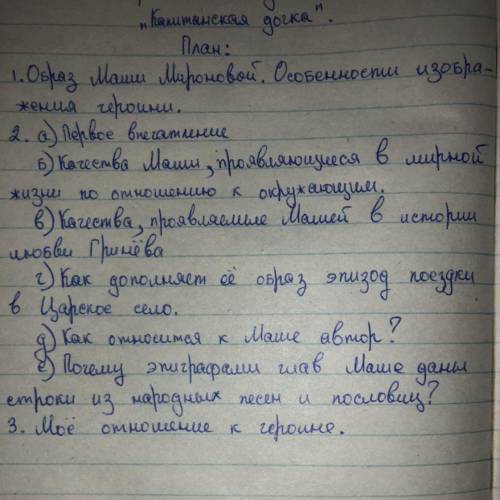 „Капитанская дочка".
План:
1. Образ Маши Мироновой. Особенности изобра-
жения героини.
2. а) Первое впечатление
б) Качества Маши, проявляющиеся в мирной
жизни по отношению к окружающим.
в) Качества, проявляемые Машей в истории
любви Гринёва
г) Как дополняет её образ эпизод поездки
в Царское село.
д) Как относится к Маше автор?
е) Почему эпиграфами глав Маше даны
строки из народных песен и пословиц?
3. Моё отношение к героине.